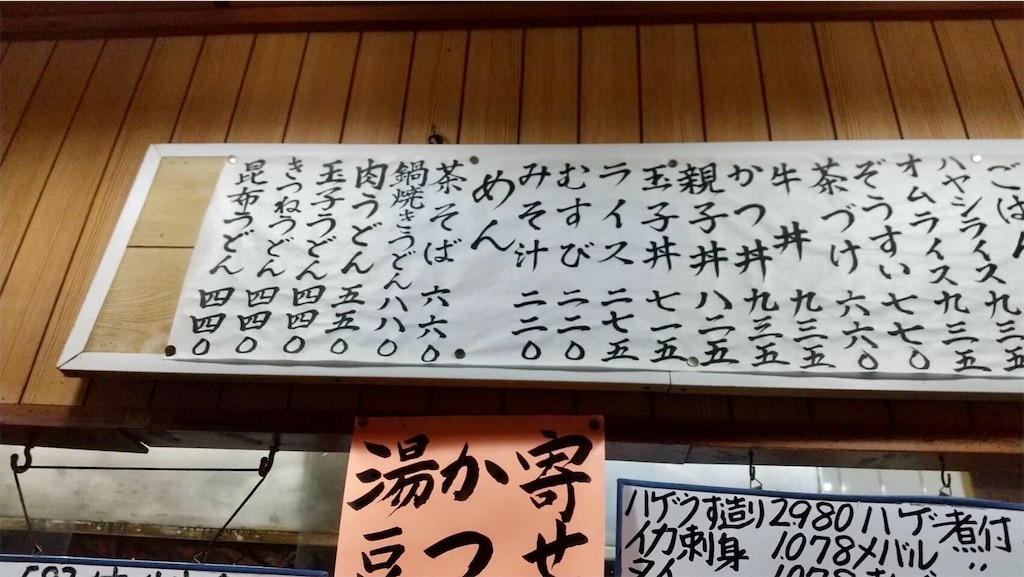 ごはん
ハヤシライス 九三五
オムライス 九三五
ぞうすい 七七〇
茶づけ 六六〇
牛丼 九三五
かつ丼 九三五
親子丼 八二五
玉子丼 七一五
ライス 二七五
むすび 二二〇
みそ汁 二二〇
めん
茶そば 六六〇
鍋焼きうどん 八八〇
肉うどん 五五〇
玉子うどん 四四〇
きつねうどん 四四〇
昆布うどん 四四〇
寄せ
かつ
湯豆
ハゲうす造り 2980
イカ刺身 1.078
タイ 1078
ハゲ煮付
メバル 〃